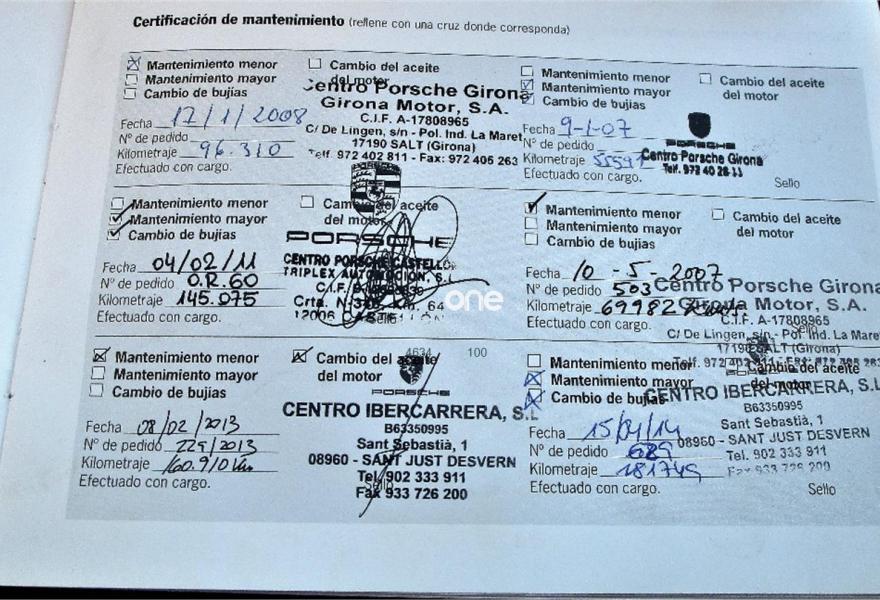 Certificación de mantenimiento (rellene con una cruz donde corresponda)
Mantenimiento menor
Mantenimiento mayor
Cambio de bujías
Cambio del aceite
del motor
Fecha 17/1/2008
Nº de pedido
Kilometraje 96.310
Efectuado con cargo.
Centro Porsche Girona
Girona Motor, S.A.
C.I.F. A-17808965
C/ De Lingen, s/n - Pol. Ind. La Maret
17190 SALT (Girona)
Telf. 972 402 811 - Fax: 972 406 263
Mantenimiento menor
Mantenimiento mayor
Cambio de bujías
Cambio del aceite
del motor
Fecha 9-1-07
Nº de pedido
Kilometraje 55591
Efectuado con cargo.
PORSCHE
Centro Porsche Girona
Telf. 972 40 28 11
Sello
Mantenimiento menor
Mantenimiento mayor
Cambio de bujías
Cambio del aceite
del motor
Fecha 04/02/11
Nº de pedido O.R.60
Kilometraje 145.075
Efectuado con cargo.
PORSCHE
CENTRO PORSCHE CASTELLÓN
TRIPLEX AUTOMOCION, S.L
C.I.F.
Crta. N-340 Km. 64
12006 CASTELLÓN
Sello
one
Mantenimiento menor
Mantenimiento mayor
Cambio de bujías
Cambio del aceite
del motor
Fecha 10-5-2007
Nº de pedido 503
Kilometraje 69982
Efectuado con cargo.
Centro Porsche Girona
Girona Motor, S.A.
C.I.F. A-17808965
Sello
C/ De Lingen, s/n - Pol. Ind. La Maret
17190 SALT (Girona)
Mantenimiento menor
Mantenimiento mayor
Cambio de bujías
Cambio del aceite
del motor
4634 100
Fecha 08/02/2013
Nº de pedido 229/2013
Kilometraje 160.910 km
Efectuado con cargo.
PORSCHE
CENTRO IBERCARRERA, S.L
B63350995
Sant Sebastià, 1
08960 - SANT JUST DESVERN
Tel. 902 333 911
Fax 933 726 200
Sello
Mantenimiento menor
Mantenimiento mayor
Cambio de bujías
Cambio del aceite
del motor
Fecha 15/04/14
Nº de pedido 689
Kilometraje 181749
Efectuado con cargo.
CENTRO IBERCARRERA, S.L
B63350995
Sant Sebastià, 1
08960 - SANT JUST DESVERN
Tel. 902 333 911
Fax 933 726 200
Sello